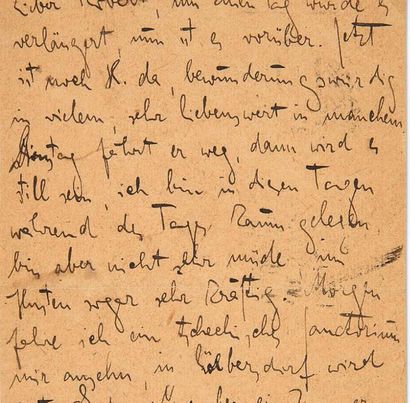 Lieber Robert, um einen Tag wurde es
verlängert, nun ist es vorüber. Jetzt
ist noch K. da, bewunderungswürdig
in vielem, sehr liebenswert in manchem
Dienstag fährt er weg, dann wird es
still sein, ich bin in diesen Tagen
während des Tages kaum gelegen,
bin aber nicht sehr müde im
Husten sogar sehr kräftig. Morgen
fahre ich ein tschechisches Sanatorium
mir ansehn, in Görbersdorf wird